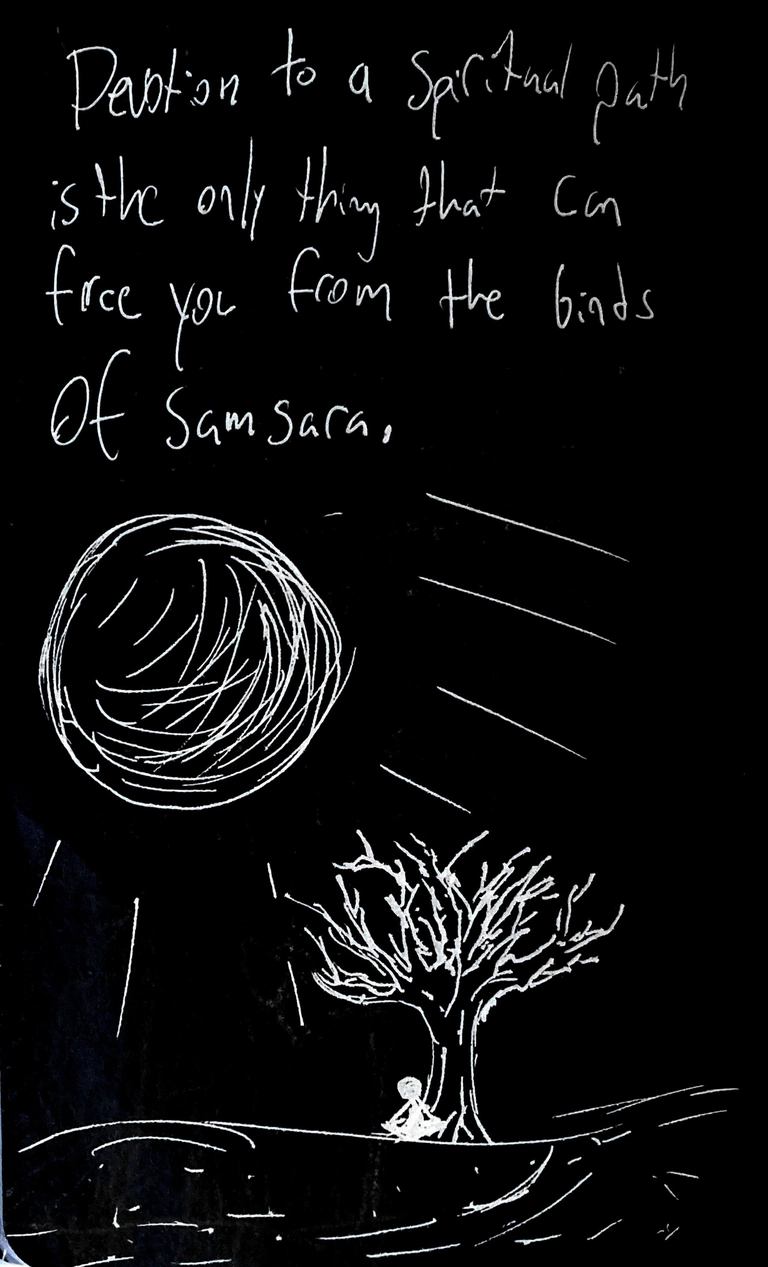 Devotion to a spiritual path
is the only thing that can
free you from the binds
Of Samsara.